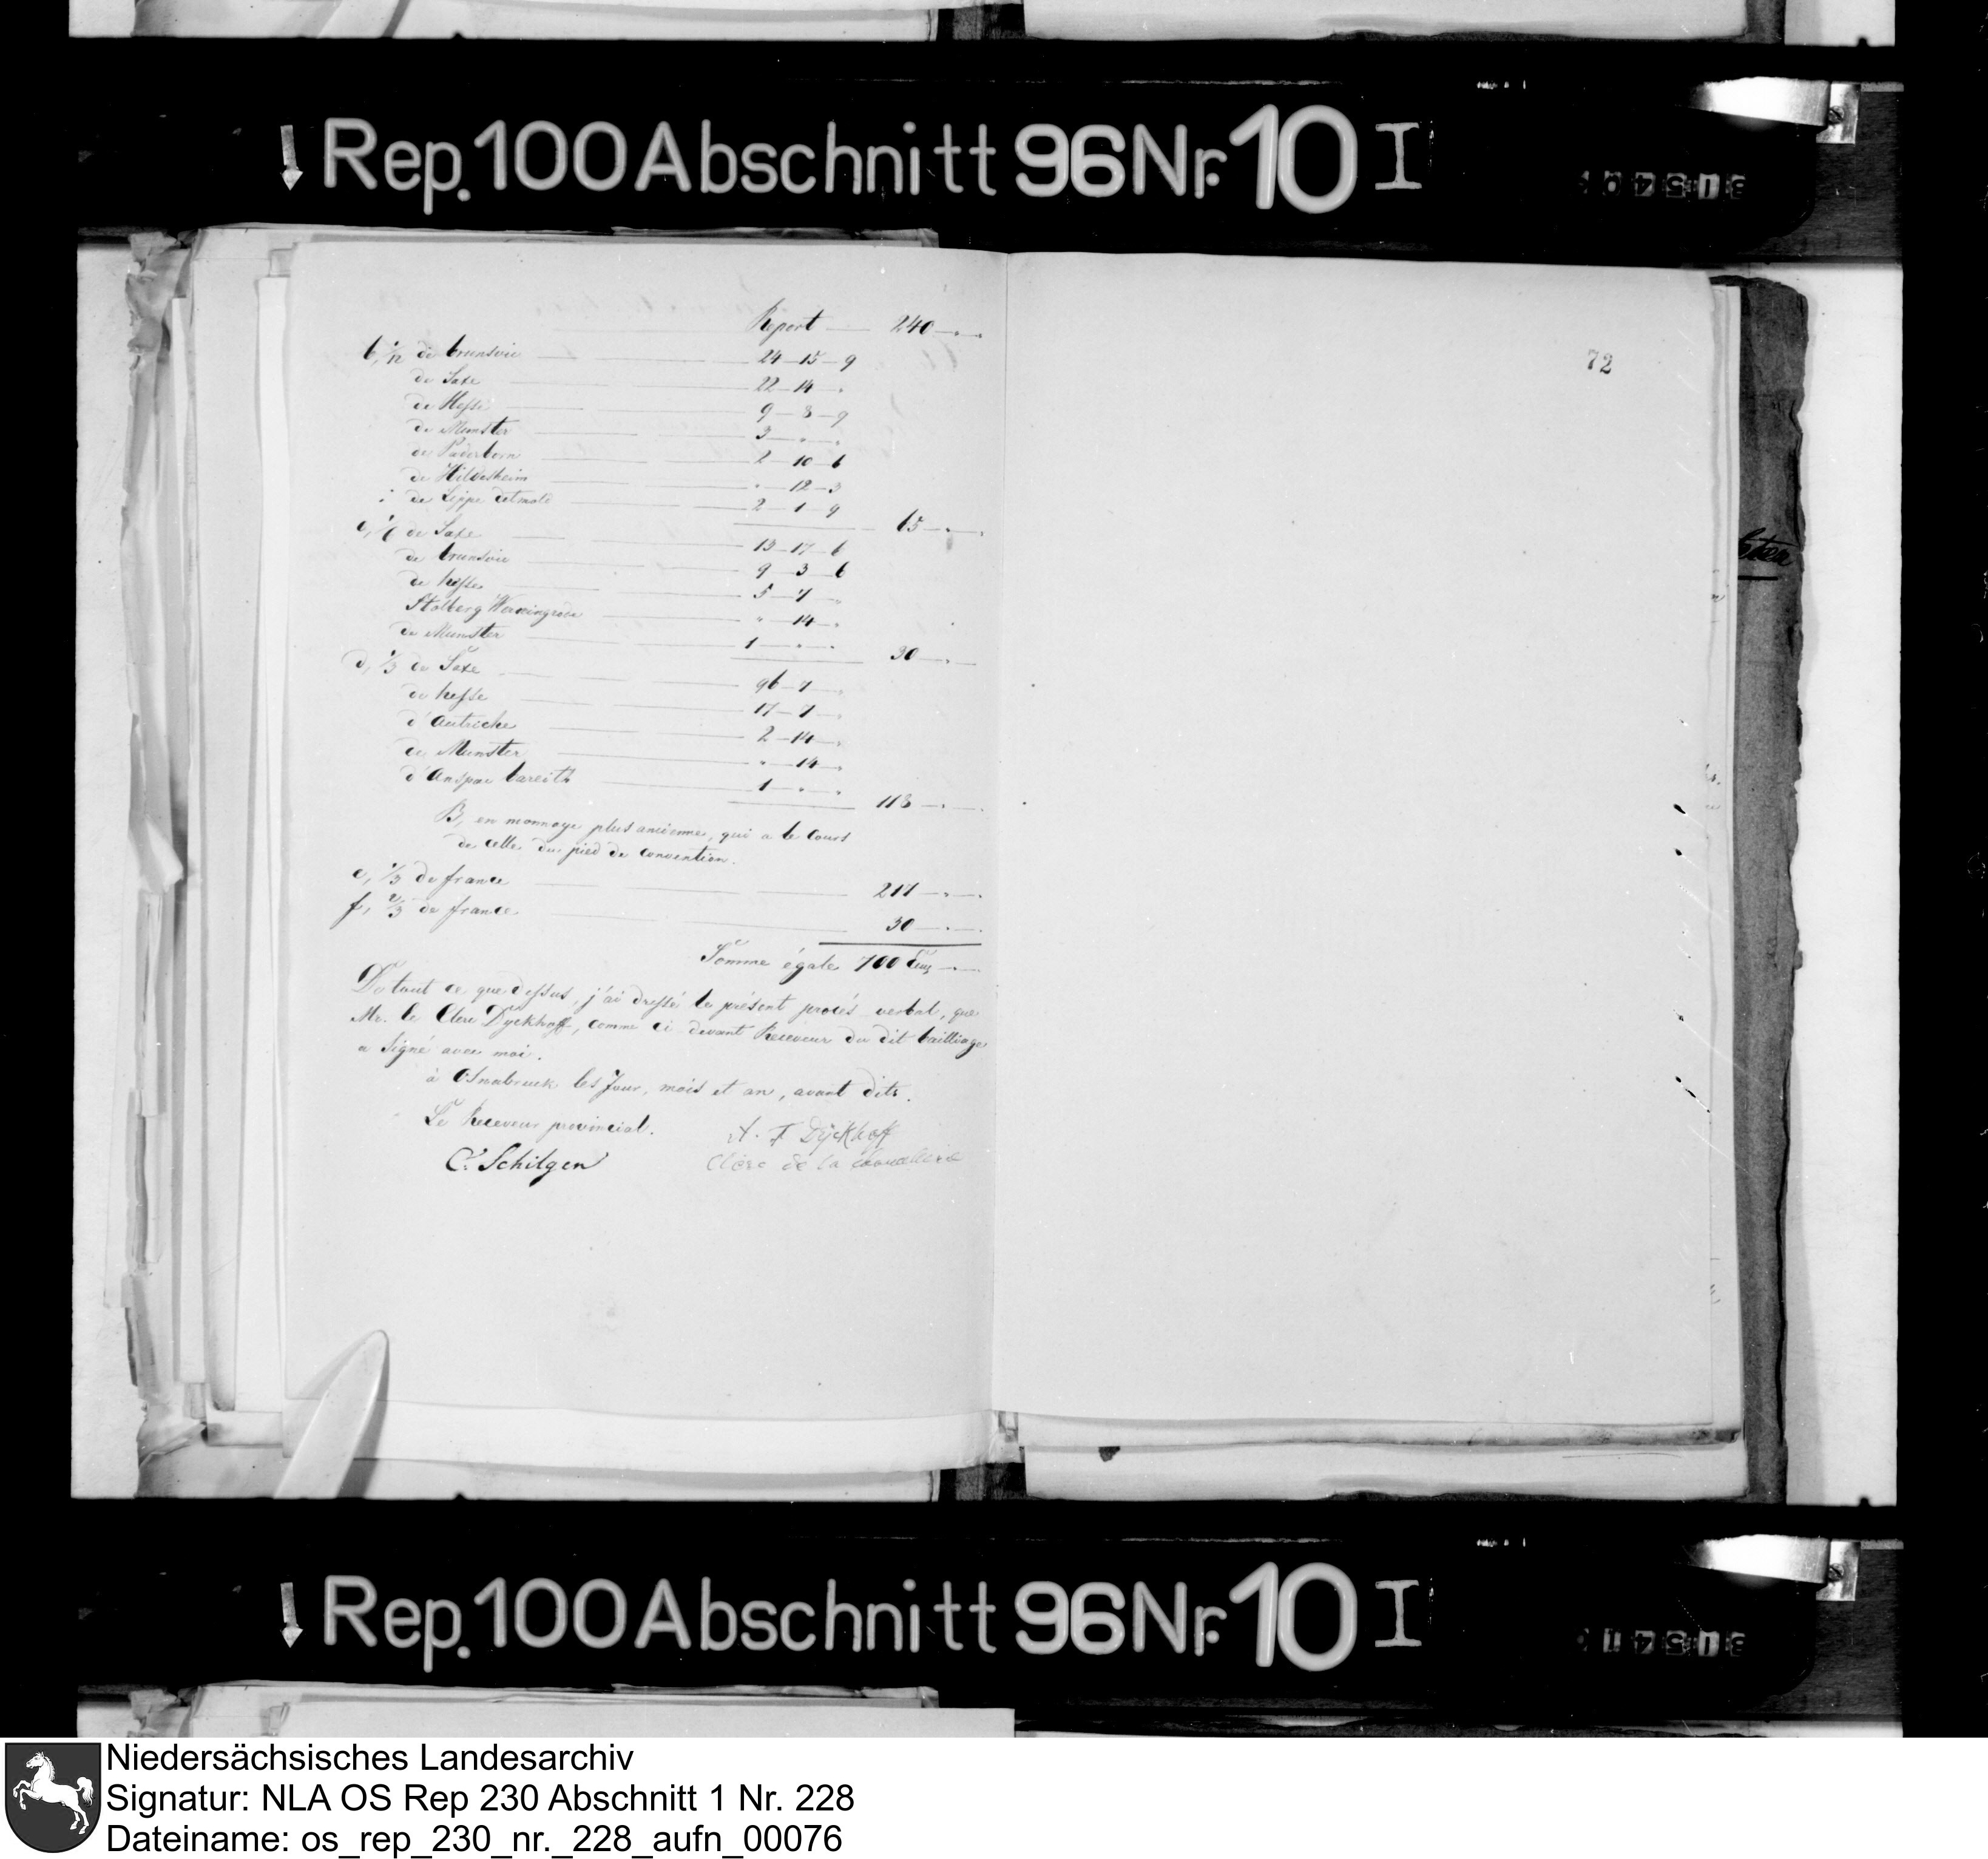 Rep. 100 Abschnitt 96 Nr. 10 I
31540
Report — 240 — „ —
b, 1/12 de brunsvic — 24 — 15 — 9
de Saxe — 22 — 14 — „
de Hesse — 9 — 8 — 9
de Munster — 3 — „ — „
de Paderborn — 2 — 10 — 6
de Hildesheim — „ — 12 — 3
de Lippe detmold — 2 — 1 — 9
65 — „ —
c, 1/6 de Saxe — 13 — 17 — 6
de brunsvic — 9 — 3 — 6
de hesse — 5 — 7 — „
Stolberg Werningrode — „ — 14 — „
de Munster — 1 — „ — „
30 — „ —
d, 1/3 de Saxe — 96 — 7 — „
de hesse — 17 — 7 — „
d'Autriche — 2 — 14 — „
de Munster — „ — 14 — „
d'Anspac bareith — 1 — „ — „
118 — „ —
B, en monnoye plus ancienne, qui a le Cours
de celle du pied de convention.
e, 1/3 de france — 217 — „ —
f, 2/3 de france — 30 — „ —
Somme égale 700 Ecus — „ —
De tout ce que dessus, j'ai dressé le présent procés verbal, que
Mr. le Clerc Dyckhoff, comme ci devant Receveur du dit bailliage
a Signé avec moi.
à Osnabruck les Jour, mois et an, avant dits.
Le Receveur provincial.
C. Schilgen
A. F. Dyckhoff
Clerc de la
72
Rep. 100 Abschnitt 96 Nr. 10 I
31541
Niedersächsisches Landesarchiv
Signatur: NLA OS Rep 230 Abschnitt 1 Nr. 228
Dateiname: os_rep_230_nr._228_aufn_00076